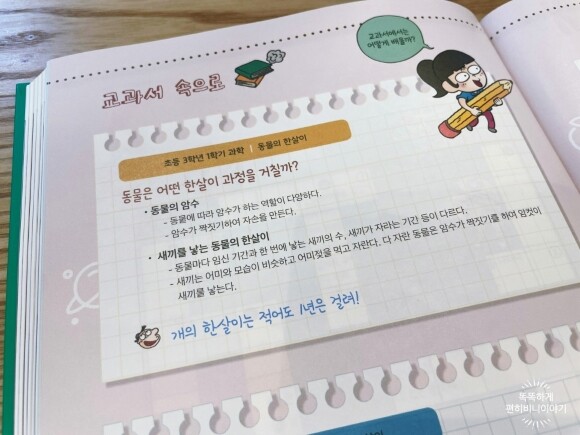 교과서에서는
어떻게 배울까?
교과서 속으로
초등 3학년 1학기 과학 | 동물의 한살이
동물은 어떤 한살이 과정을 거칠까?
• 동물의 암수
- 동물에 따라 암수가 하는 역할이 다양하다.
- 암수가 짝짓기하여 자손을 만든다.
• 새끼를 낳는 동물의 한살이
- 동물마다 임신 기간과 한 번에 낳는 새끼의 수, 새끼가 자라는 기간 등이 다르다.
- 새끼는 어미와 모습이 비슷하고 어미젖을 먹고 자란다. 다 자란 동물은 암수가 짝짓기를 하여 암컷이
새끼를 낳는다.
개의 한살이는 적어도 1년은 걸려!
똑똑하게
편히비니이야기